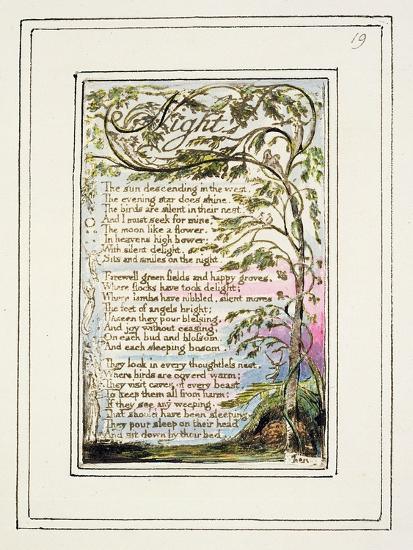 19
Night.
The sun descending in the west.
The evening star does shine.
The birds are silent in their nest.
And I must seek for mine.
The moon like a flower.
In heavens high bower:
With silent delight,
Sits and smiles on the night.
Farewell green fields and happy groves,
Where flocks have took delight;
Where lambs have nibbled, silent moves
The feet of angels bright;
Unseen they pour blessing,
And joy without ceasing,
On each bud and blossom,
And each sleeping bosom.
They look in every thoughtless nest,
Where birds are coverd warm;
They visit caves of every beast,
To keep them all from harm:
If they see any weeping,
That should have been sleeping
They pour sleep on their head
And sit down by their bed.